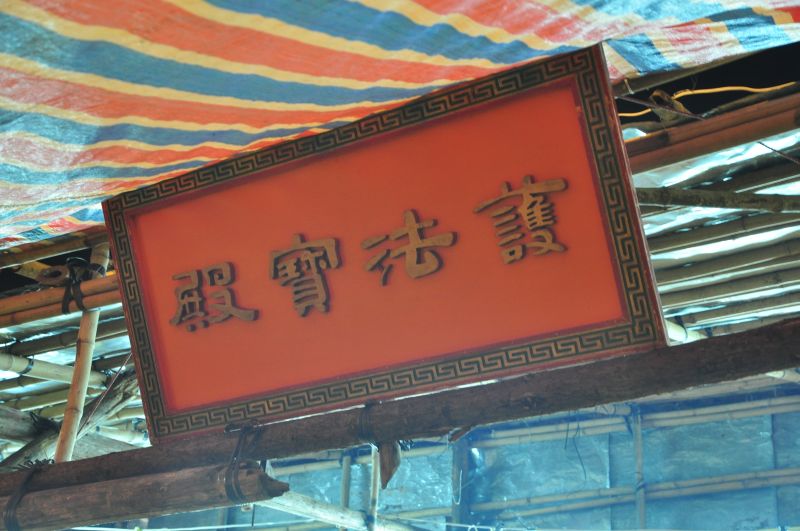 護法寶殿